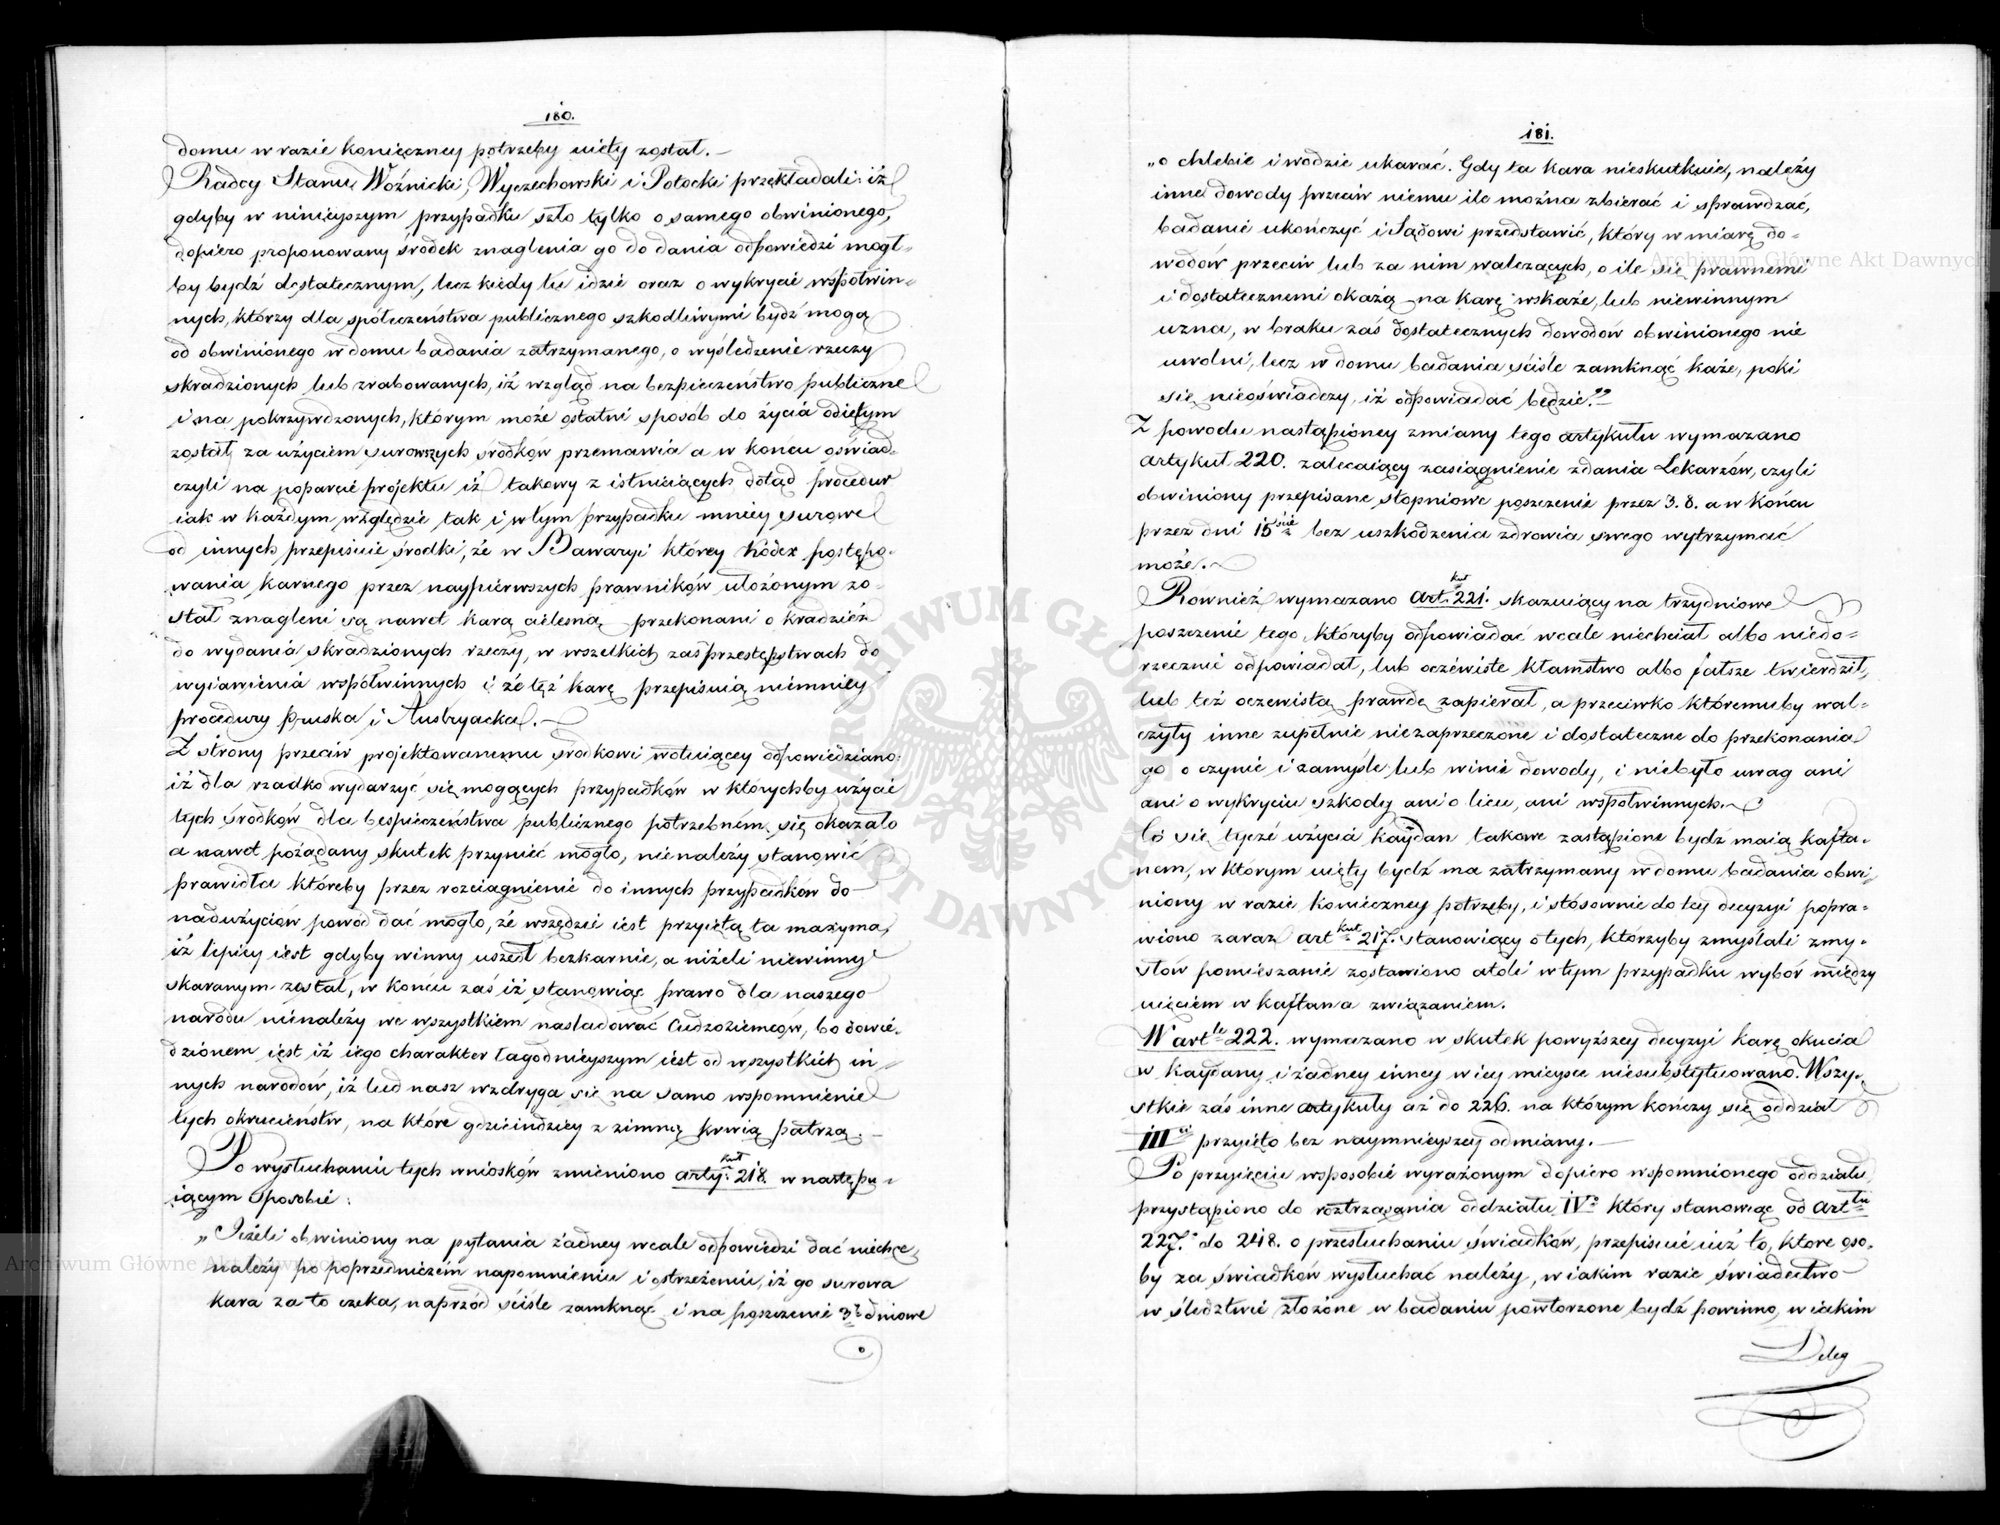 180.
domu w razie konieczney potrzeby uięty został.—
Radcy Stanu Woźnicki, Wyczechowski i Potocki przekładali: iż
gdyby w ninieyszym przypadku szło tylko o samego obwinionego,
dopiero proponowany środek znaglenia go do dania odpowiedzi mógł-
by bydź dostatecznym, lecz kiedy tu idzie oraz o wykrycie wspołwin=
nych, którzy dla społeczeństwa publicznego szkodliwymi bydź mogą
od obwinionego w domu badania zatrzymanego, o wyśledzenie rzeczy
skradzionych lub zrabowanych, iż wzgląd na bezpieczeństwo publiczne
i na pokrzywdzonych, którym może ostatni sposób do życia odiętym
został, za użyciem surowszych środków przemawia a w końcu oświad=
czyli na poparcie projektu iż takowy z istnieiących dotąd procedur
iak w każdym względzie tak i w tym przypadku mniey surowe
od innych przepisuie środki, że w Bawaryi którey kodex postępo-
wania karnego przez naypierwszych prawników ułożonym zo-
stał znagleni są nawet karą cielesną przekonani o kradzież
do wydania skradzionych rzeczy, w wszelkich zaś przestępstwach do
wyiawienia wspołwinnych i że też karę przepisuią niemniey
procedury pruska i Austryacka.—
Z strony przeciw projektowanemu środkowi wotuiącey odpowiedziano:
iż dla rzadko wydarzyć się mogących przypadków w którychby użycie
tych środków dla bespieczeństwa publicznego potrzebnem się okazało
a nawet pożądany skutek przynieść mogło, nienależy stanowić
prawidła któreby przez rozciągnienie do innych przypadków do
nadużyciów powód dać mogło, że wszędzie iest przyięta ta maxyma,
iż lepiey iest gdyby winny uszedł bezkarnie, a niżeli niewinny
skaranym został, w końcu zaś iż stanowiąc prawo dla naszego
narodu nienależy we wszystkiem naśladować Cudzoziemców, bo dowie-
dzionem iest iż iego charakter łagodnieyszym iest od wszystkich in=
nych narodów, iż lud nasz wzdryga się na samo wspomnienie
tych okrucieństw, na które gdzieindziey z zimną krwią patrzą.—
Po wysłuchaniu tych wniosków zmieniono arty: kuł 218. w nastepu-
iącym sposobie:
„Jeżeli obwiniony na pytania żadney wcale odpowiedzi dać niechce,
należy po poprzedniczem napomnieniu i ostrzeżeniu, iż go surowa
kara za to czeka, naprzód ściśle zamknąć i na poszczenie 3ch dniowe
181.
„o chlebie i wodzie ukarać. Gdy ta kara nieskutkuie, należy
inne dowody przeciw niemu ile można zbierać i sprawdzać,
badanie ukończyć i Sądowi przedstawić, który w miarę do-
wodów przeciw lub za nim walczących, o ile się prawnemi
i dostatecznemi okażą na karę wskaże, lub niewinnym
uzna, w braku zaś dostatecznych dowodów obwinionego nie
uwolni, lecz w domu badania ściśle zamknąć każe, poki
się nieoświadczy, iż odpowiadać będzie."—
Z powodu nastąpioney zmiany tego artykułu wymazano
artykuł 220. zalecaiący zasiągnienie zdania Lekarzów, czyli
obwiniony przepisane stopniowe poszczenie przez 3. 8. a w końcu
przez dni 15ście bez uszkodzenia zdrowia swego wytrzymać
może.—
Również wymazano art. kuł 221. skazuiący na trzydniowe
poszczenie tego, któryby odpowiadać wcale niechciał albo niedo-
rzecznie odpowiadał, lub oczewiste kłamstwo albo fałsze twierdził,
lub też oczewistą prawdę zapierał, a przeciwko któremuby wal-
czyły inne zupełnie niezaprzeczone i dostateczne do przekonania
go o czynie i zamyśle lub winie dowody, i niebyło uwag ani
ani o wykryciu szkody ani o licu, ani wspołwinnych.—
Co się tycze użycia kaydan takowe zastąpione bydź maią kafta-
nem, w którym uięty bydź ma zatrzymany w domu badania obwi-
niony w razie konieczney potrzeby, i stosownie do tey decyzyi popra-
wiono zaraz art kuł 217. stanowiący o tych, którzyby zmyślali zmy-
słów pomieszanie zostawiono atoli w tym przypadku wybór między
uięciem w kaftan a związaniem.
W art le 222. wymazano w skutek powyższey decyzyi karę okucia
w kaydany i żadney inney w iey mieysce niesubstytuowano. Wszy-
stkie zaś inne artykuły aż do 226. na którym kończy się oddział
IIIci przyięto bez naymnieyszey odmiany.—
Po przyięciu wsposobie wyrażonym dopiero wspomnionego oddziału,
przystąpiono do roztrząsania oddziału IVo który stanowiąc od Art łu
227.° do 248. o przesłuchaniu świadków, przepisuie iuż to, które oso-
by za świadków wysłuchać należy, w iakim razie świadectwo
w śledztwie złożone w badaniu powtorzone bydź powinno, w iakim
Deleg
Archiwum Główne Akt Dawnych
Archiwum Główne Akt Dawnych
ARCHIWUM GŁÓWNE
AKT DAWNYCH